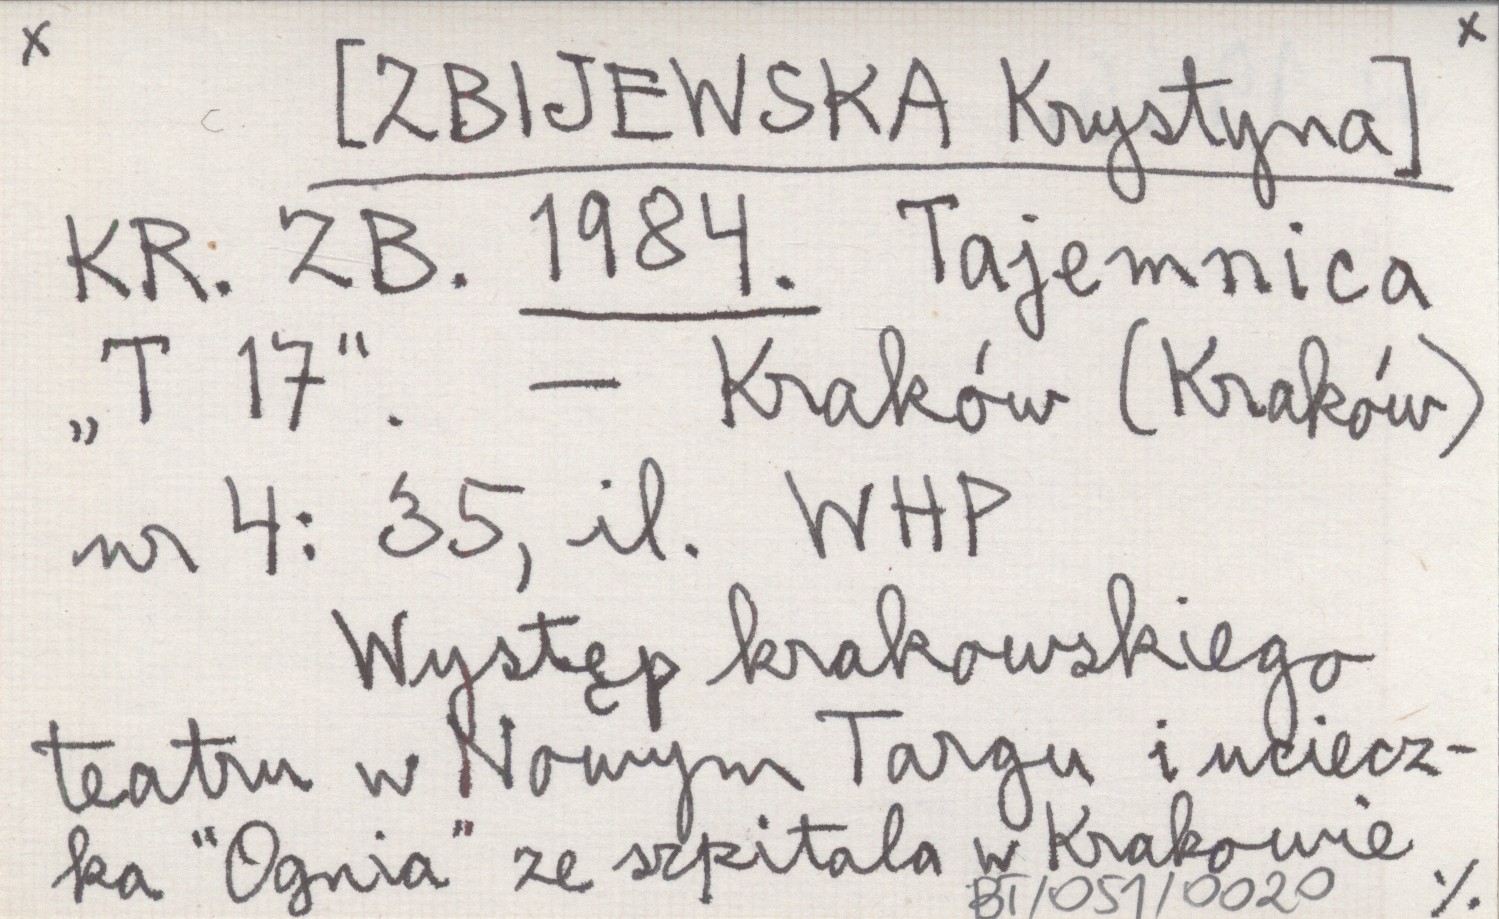 x x
[ZBIJEWSKA Krystyna]
KR. ZB. 1984. Tajemnica
„T 17". — Kraków (Kraków)
nr 4: 35, il. WHP
Występ krakowskiego
teatru w Nowym Targu i uciecz-
ka "Ognia" ze szpitala w Krakowie
BT/051/0020 ./.